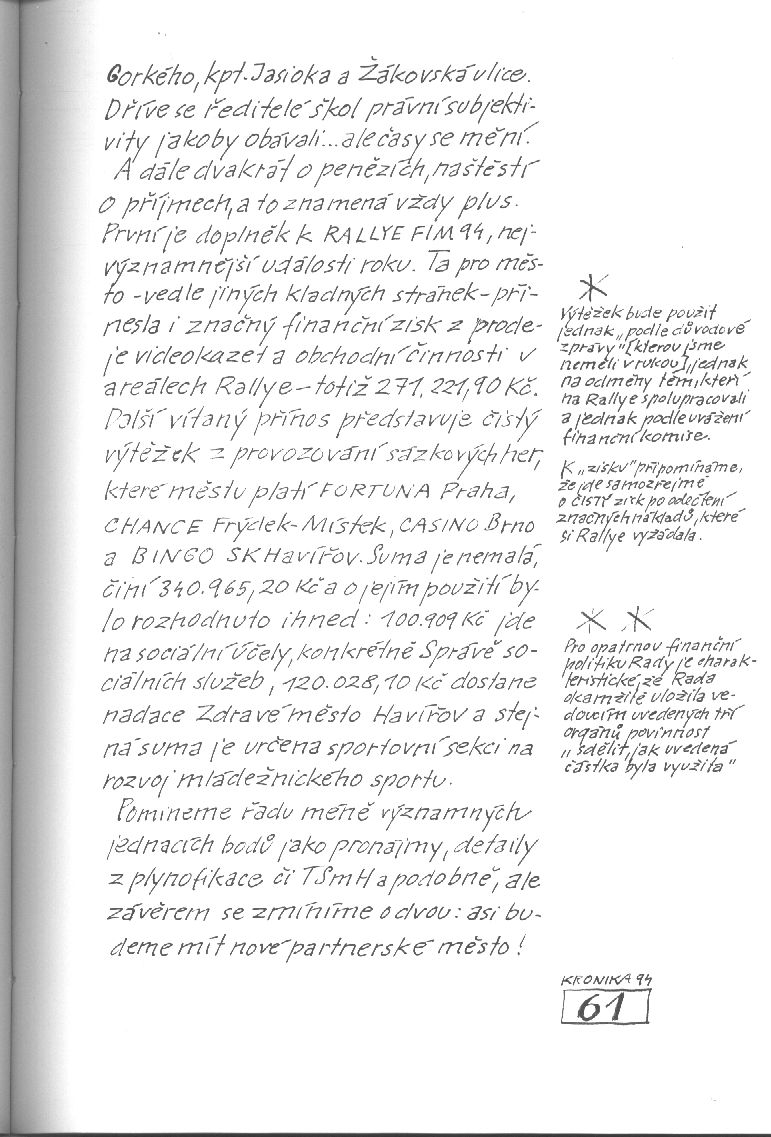 Gorkého, kpt. Jasioka a Žákovská ulice.
Dříve se ředitelé škol právní subjekti-
vity jakoby obávali... ale časy se mění.
A dále dvakrát o penězích, naštěstí
o příjmech, a to znamená vždy plus.
První je doplněk k RALLYE FIM 94, nej-
významnější události roku. Ta pro měs-
to - vedle jiných kladných stránek - při-
nesla i značný finanční zisk z prode-
je videokazet a obchodní činnosti v
areálech Rallye - totiž 271,221,90 Kč.
Další vítaný přínos představuje čistý
výtěžek z provozování sázkových her,
které městu platí FORTUNA Praha,
CHANCE Frýdek-Místek, CASINO Brno
a BINGO SK Havířov. Suma je nemalá,
činí 340.965,20 Kč a o jejím použití by-
lo rozhodnuto ihned: 100.909 Kč jde
na sociální účely, konkrétně Správě so-
ciálních služeb, 120.028,10 Kč dostane
nadace Zdravé město Havířov a stej-
ná suma je určena sportovní sekci na
rozvoj mládežnického sportu.
Pomineme řadu méně významných
jednacích bodů jako pronájmy, detaily
z plynofikace či TSmH a podobně, ale
závěrem se zmíníme o dvou: asi bu-
deme mít nové partnerské město!
*
Výtěžek bude použit
jednak „podle důvodové
zprávy" [kterou jsme
neměli v rukou], jednak
na odměny těm, kteří
na Rallye spolupracovali
a jednak podle uvážení
finanční komise.
K „zisku" připomínáme,
že jde samozřejmě
o čistý zisk po odečtení
značných nákladů, které
si Rallye vyžádala.
* *
Pro opatrnou finanční
politiku Rady je charak-
teristické, že Rada
okamžitě uložila ve-
doucím uvedených tří
orgánů povinnost
„sdělit, jak uvedená
částka byla využita"
KRONIKA 94
61